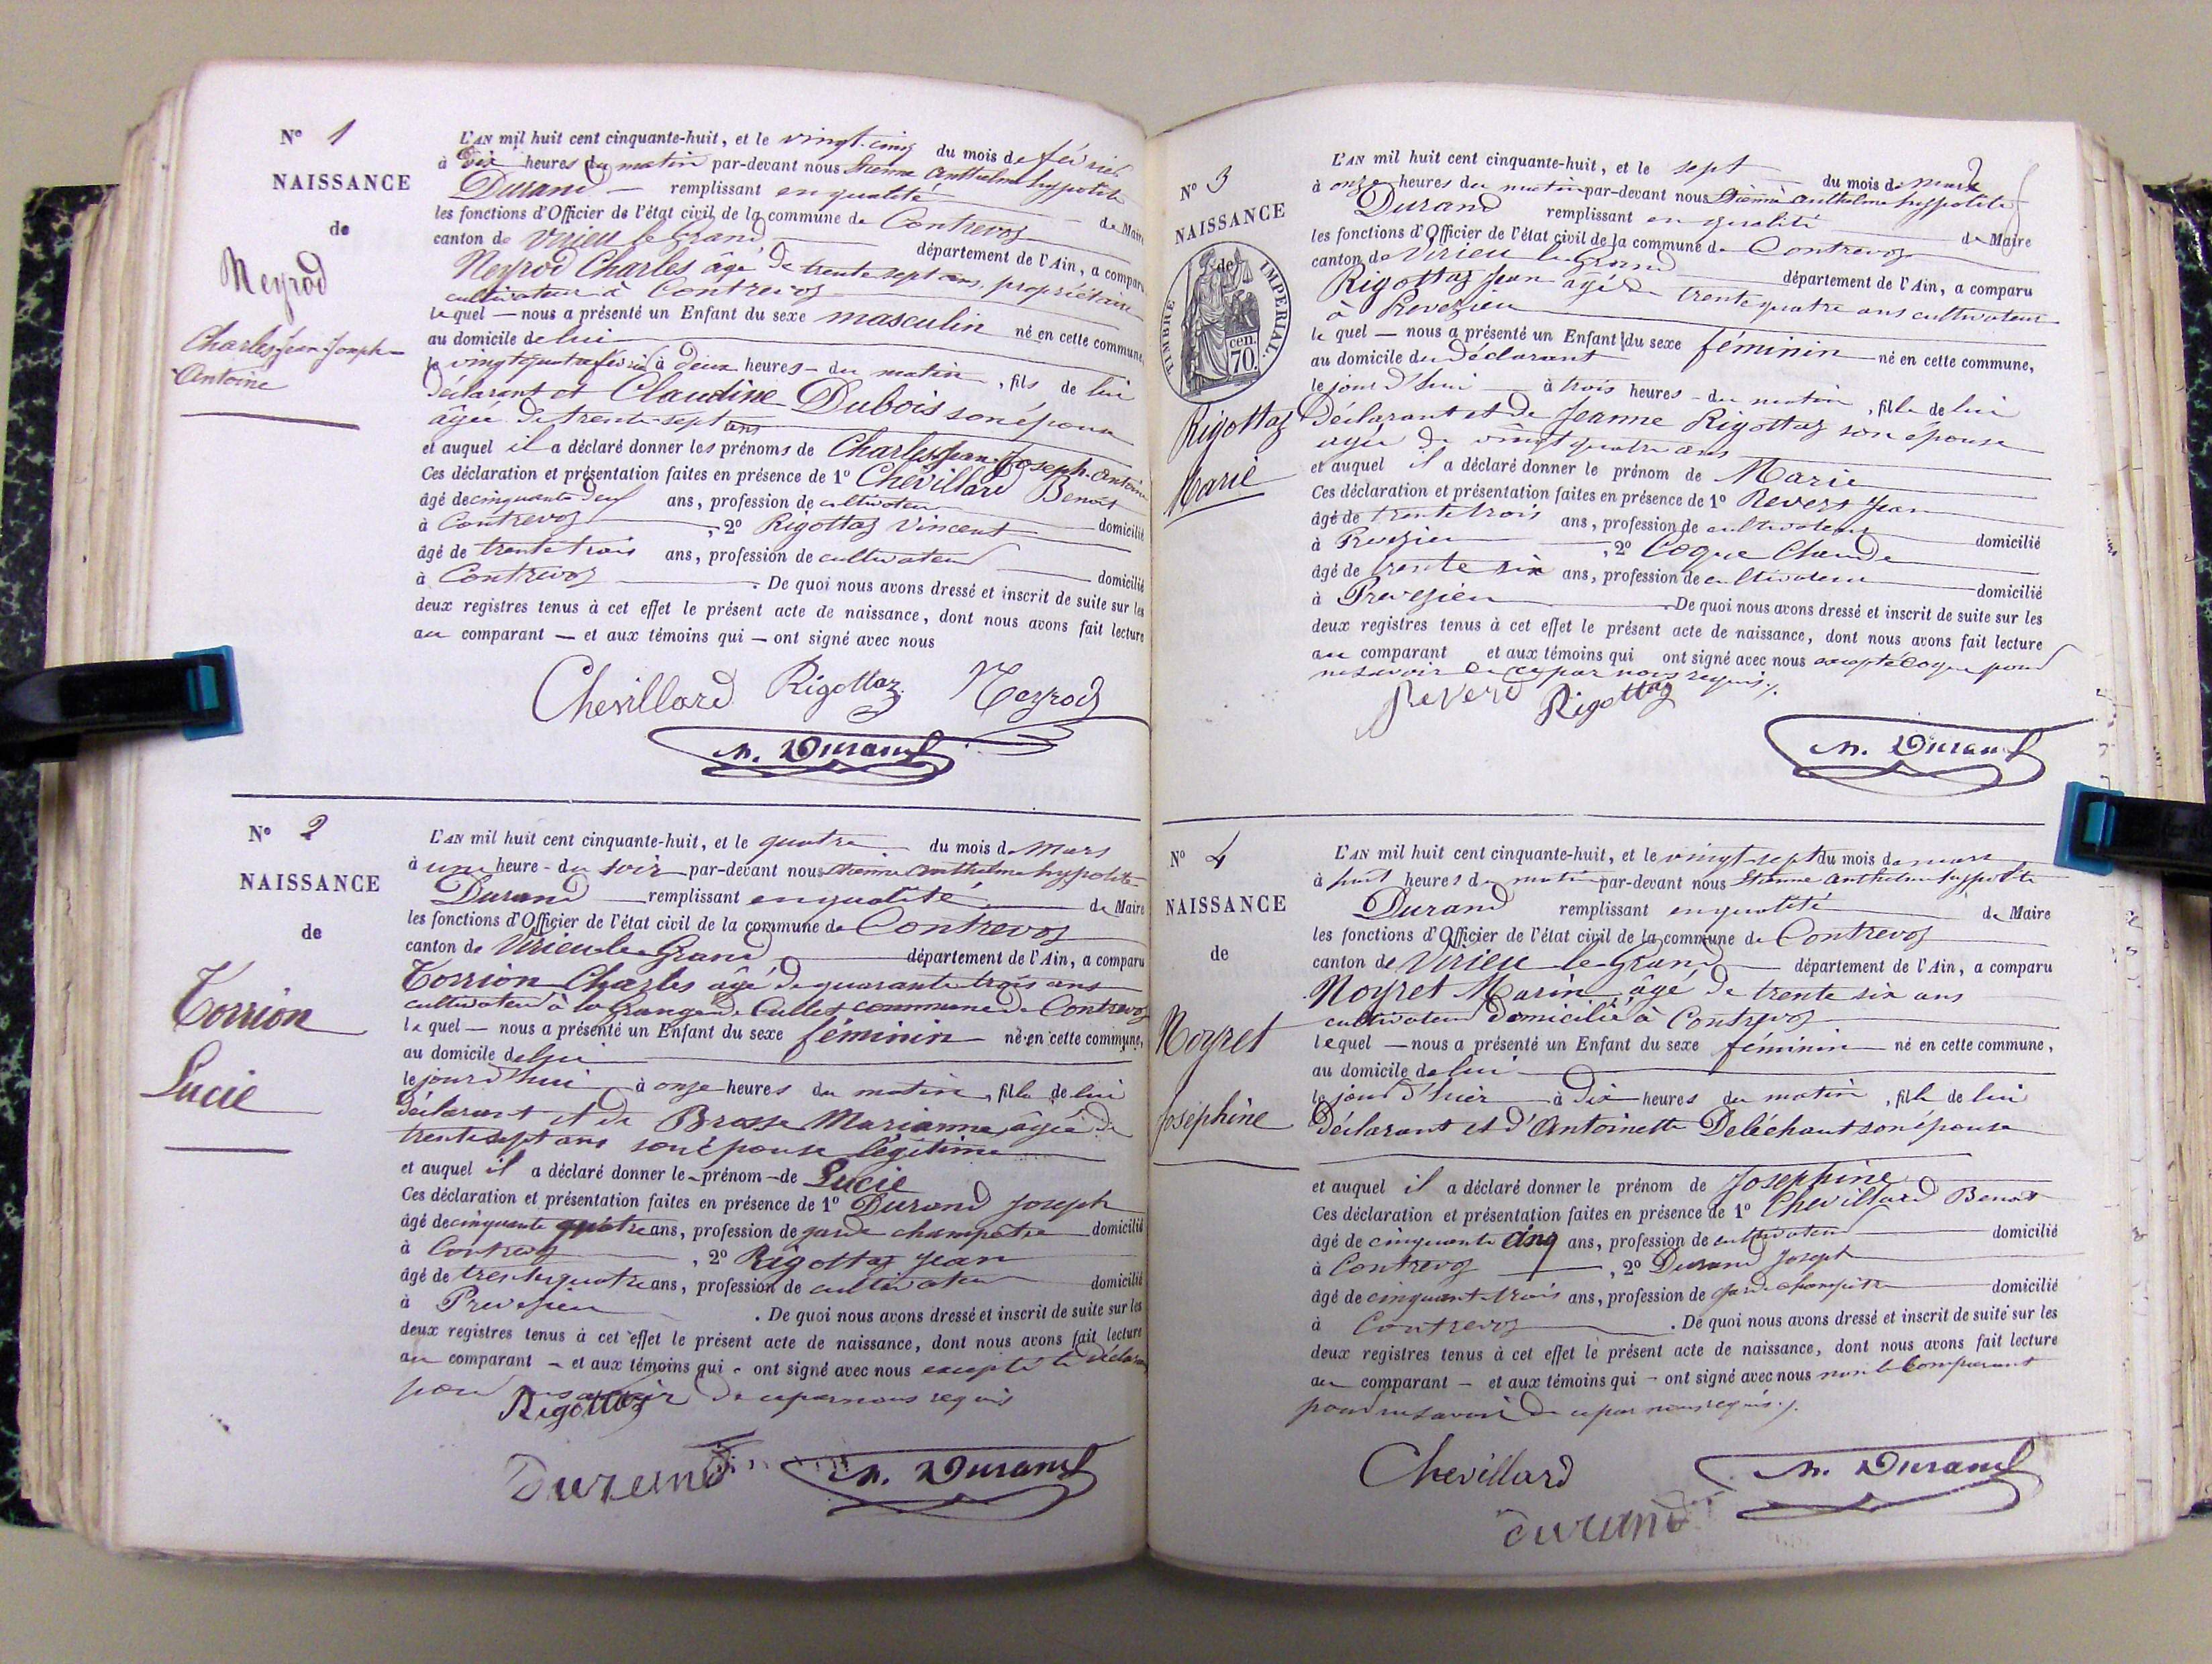 N° 1
NAISSANCE
de
Neyrod
Charles Jean Joseph
Antoine
L'AN mil huit cent cinquante-huit, et le vingt-cinq du mois de février
à dix heures du matin par-devant nous Etienne Anthelme hyppolite
Durand remplissant en qualité de Maire
les fonctions d'Officier de l'état civil de la commune de Contrevoz
canton de Virieu le Grand département de l'Ain, a comparu
Neyrod Charles âgé de trente sept ans, propriétaire
cultivateur à Contrevoz
lequel — nous a présenté un Enfant du sexe masculin né en cette commune,
au domicile de lui
le vingt quatre février à deux heures du matin, fils de lui
déclarant et Claudine Dubois son épouse
âgée de trente-sept ans
et auquel il a déclaré donner les prénoms de Charles Jean Joseph Antoine
Ces déclaration et présentation faites en présence de 1° Chevillard Benoit
âgé de cinquante ans, profession de cultivateur
à Contrevoz , 2° Rigottaz Vincent domicilié
âgé de trente trois ans, profession de cultivateur
à Contrevoz . De quoi nous avons dressé et inscrit de suite sur les domicilié
deux registres tenus à cet effet le présent acte de naissance, dont nous avons fait lecture
au comparant — et aux témoins qui — ont signé avec nous
Chevillard Rigottaz Neyrod
N. Durand
N° 2
NAISSANCE
de
Torrion
Lucie
L'AN mil huit cent cinquante-huit, et le quatre du mois de Mars
à une heure du soir par-devant nous Etienne Anthelme hyppolite
Durand remplissant en qualité de Maire
les fonctions d'Officier de l'état civil de la commune de Contrevoz
canton de Virieu le Grand département de l'Ain, a comparu
Torrion Charles âgé de quarante trois ans
cultivateur à la Grange de Cullet commune de Contrevoz
lequel — nous a présenté un Enfant du sexe féminin né en cette commune,
au domicile de lui
le jourd'hui à onze heures du matin, fille de lui
déclarant et de Brosse Marianne âgée de
trente sept ans son épouse légitime
et auquel il a déclaré donner le prénom de Lucie
Ces déclaration et présentation faites en présence de 1° Durand Joseph
âgé de cinquante quatre ans, profession de garde champêtre domicilié
à Contrevoz , 2° Rigottaz Jean
âgé de trente quatre ans, profession de cultivateur domicilié
à Prevezieu . De quoi nous avons dressé et inscrit de suite sur les
deux registres tenus à cet effet le présent acte de naissance, dont nous avons fait lecture
au comparant — et aux témoins qui - ont signé avec nous excepté le déclarant
pour ne savoir de ce par nous requis
Rigottaz
Durand N. Durand
N° 3
NAISSANCE
de
TIMBRE IMPERIAL.
70 cen.
Rigottaz
Marie
L'AN mil huit cent cinquante-huit, et le sept du mois de mars
à onze heures du matin par-devant nous Etienne Anthelme hyppolite
Durand remplissant en qualité de Maire
les fonctions d'Officier de l'état civil de la commune de Contrevoz
canton de Virieu le Grand département de l'Ain, a comparu
Rigottaz Jean âgé de trente quatre ans cultivateur
à Prevezieu
lequel — nous a présenté un Enfant du sexe féminin né en cette commune,
au domicile du déclarant
le jourd'hui à trois heures du matin, fille de lui
Déclarant et de Jeanne Rigottaz son épouse
agée de vingt quatre ans
et auquel il a déclaré donner le prénom de Marie
Ces déclaration et présentation faites en présence de 1° Revert Jean
âgé de trente trois ans, profession de cultivateur
à Prevezieu , 2° Coque Claude domicilié
âgé de trente six ans, profession de cultivateur
à Prevezieu . De quoi nous avons dressé et inscrit de suite sur les domicilié
deux registres tenus à cet effet le présent acte de naissance, dont nous avons fait lecture
au comparant et aux témoins qui ont signé avec nous excepté Coque pour
ne savoir de ce par nous requis.
Revert Rigottaz
N. Durand
N° 4
NAISSANCE
de
Noyret
Joséphine
L'AN mil huit cent cinquante-huit, et le vingt-sept du mois de mars
à huit heures du matin par-devant nous Etienne Anthelme hyppolite
Durand remplissant en qualité de Maire
les fonctions d'Officier de l'état civil de la commune de Contrevoz
canton de Virieu le Grand département de l'Ain, a comparu
Noyret Marin âgé de trente six ans
cultivateur domicilié à Contrevoz
lequel — nous a présenté un Enfant du sexe féminin né en cette commune,
au domicile de lui
le jour d'hier à dix heures du matin, fille de lui
Déclarant et d'Antoinette Deléchaut son épouse
et auquel il a déclaré donner le prénom de Josephine
Ces déclaration et présentation faites en présence de 1° Chevillard Benoit
âgé de cinquante cinq ans, profession de cultivateur domicilié
à Contrevoz , 2° Durand Joseph
âgé de cinquante trois ans, profession de garde champêtre domicilié
à Contrevoz . De quoi nous avons dressé et inscrit de suite sur les
deux registres tenus à cet effet le présent acte de naissance, dont nous avons fait lecture
au comparant — et aux témoins qui - ont signé avec nous non le Comparant
pour ne savoir de ce par nous requis.
Chevillard N. Durand
durand